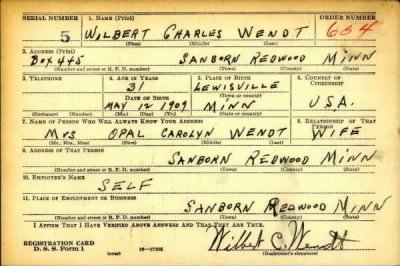 SERIAL NUMBER 1. NAME (Print) ORDER NUMBER
5 WILBERT CHARLES WENDT 664
(First) (Middle) (Last)
2. ADDRESS (Print)
BOX 445 SANBORN REDWOOD MINN
(Number and street or R. F. D. number) (Town) (County) (State)
3. TELEPHONE 4. AGE IN YEARS 5. PLACE OF BIRTH 6. COUNTRY OF CITIZENSHIP
31 LEWISVILLE
DATE OF BIRTH (Town or county)
MAY 12 1909 MINN U.S.A.
(Exchange) (Number) (Mo.) (Day) (Yr.) (State or country)
7. NAME OF PERSON WHO WILL ALWAYS KNOW YOUR ADDRESS 8. RELATIONSHIP OF THAT PERSON
MRS OPAL CAROLYN WENDT WIFE
(Mr., Mrs., Miss) (First) (Middle) (Last)
9. ADDRESS OF THAT PERSON
SANBORN REDWOOD MINN
(Number and street or R. F. D. number) (Town) (County) (State)
10. EMPLOYER'S NAME
SELF
11. PLACE OF EMPLOYMENT OR BUSINESS
SANBORN REDWOOD MINN
(Number and street or R. F. D. number) (Town) (County) (State)
I AFFIRM THAT I HAVE VERIFIED ABOVE ANSWERS AND THAT THEY ARE TRUE.
REGISTRATION CARD Wilbert C. Wendt
D. S. S. Form 1 (Registrant's signature)